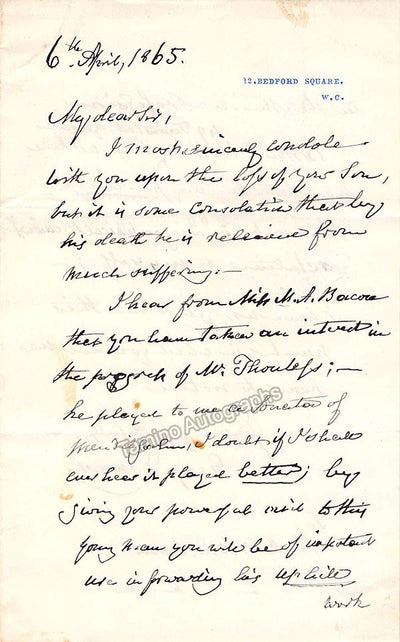 6th April, 1865.
12. BEDFORD SQUARE.
W.C.
My dear Sir,
I most sincerely condole
with you upon the loss of your Son,
but it is some Consolation that by
his death he is relieved from
much suffering.—
I hear from Miss M. A. Bacon
that you have taken an interest in
the progress of Mr Thouless; —
he played to me a Sonata of
Mendelssohn, I doubt if I shall
ever hear it played better; by
giving your powerful aid to this
young man you will be of important
use in forwarding his uphill
work
Tamino Autographs